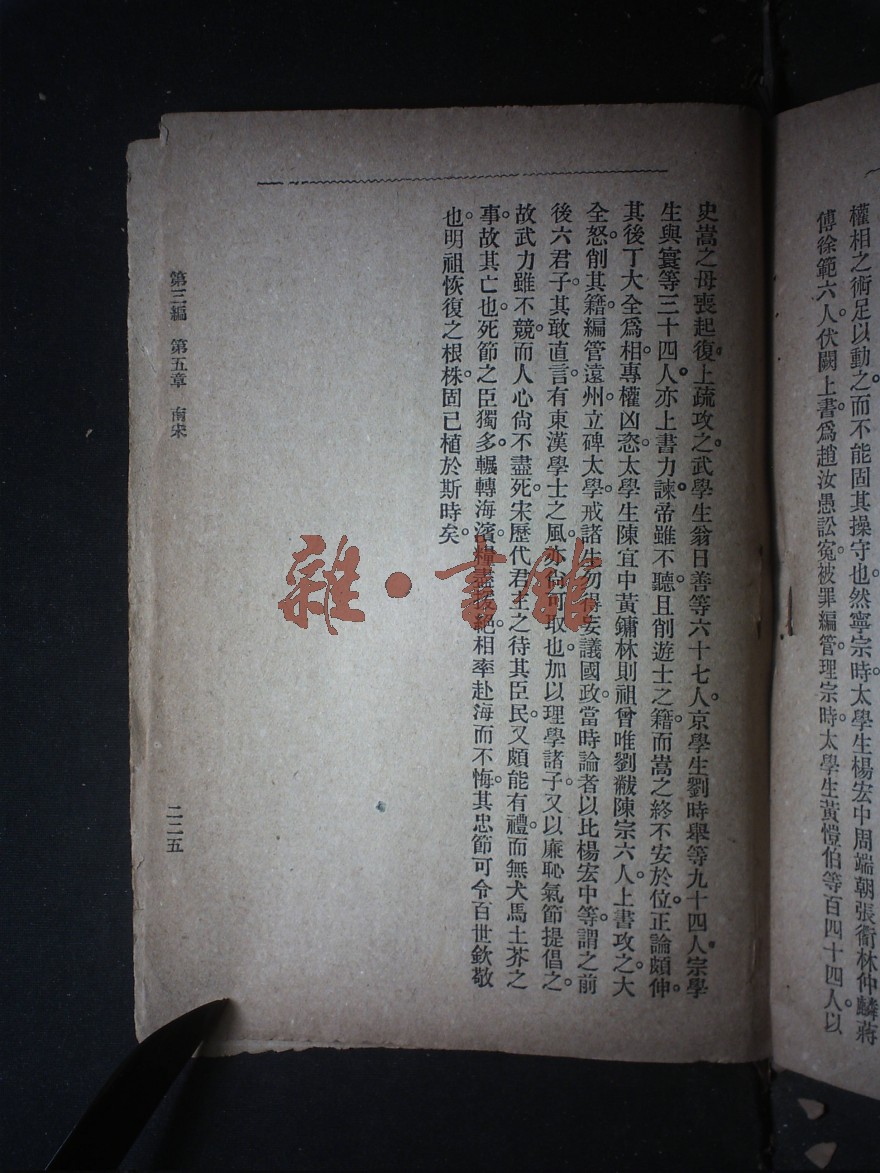 權相之術足以動之而不能固其操守也。然寧宗時太學生楊宏中周端朝張衜林仲麟蔣
傅徐範六人伏闕上書爲趙汝愚訟寃被罪編管。理宗時太學生黃愷伯等百四十四人以
史嵩之母喪起復上疏攻之。武學生翁日善等六十七人。京學生劉時舉等九十四人。宗學
生與寰等三十四人。亦上書力諫。帝雖不聽。且削遊士之籍。而嵩之終不安於位。正論頗伸。
其後丁大全爲相。專權凶恣。太學生陳宜中黃鏞林則祖曾唯劉黻陳宗六人。上書攻之。大
全怒。削其籍。編管遠州。立碑太學。戒諸生勿得妄議國政。當時論者以比楊宏中等。謂之前
後六君子。其敢直言有東漢學士之風。亦尙可取也。加以理學諸子。又以廉恥氣節提倡之。
故武力雖不競。而人心尙不盡死。宋歷代君主之待其臣民。又頗能有禮。而無犬馬土芥之
事。故其亡也。死節之臣獨多。輾轉海濱。糧盡援絕。相率赴海而不悔。其忠節可令百世欽敬
也。明祖恢復之根株。固已植於斯時矣。
第三編 第五章 南宋
二二五
雜·書館